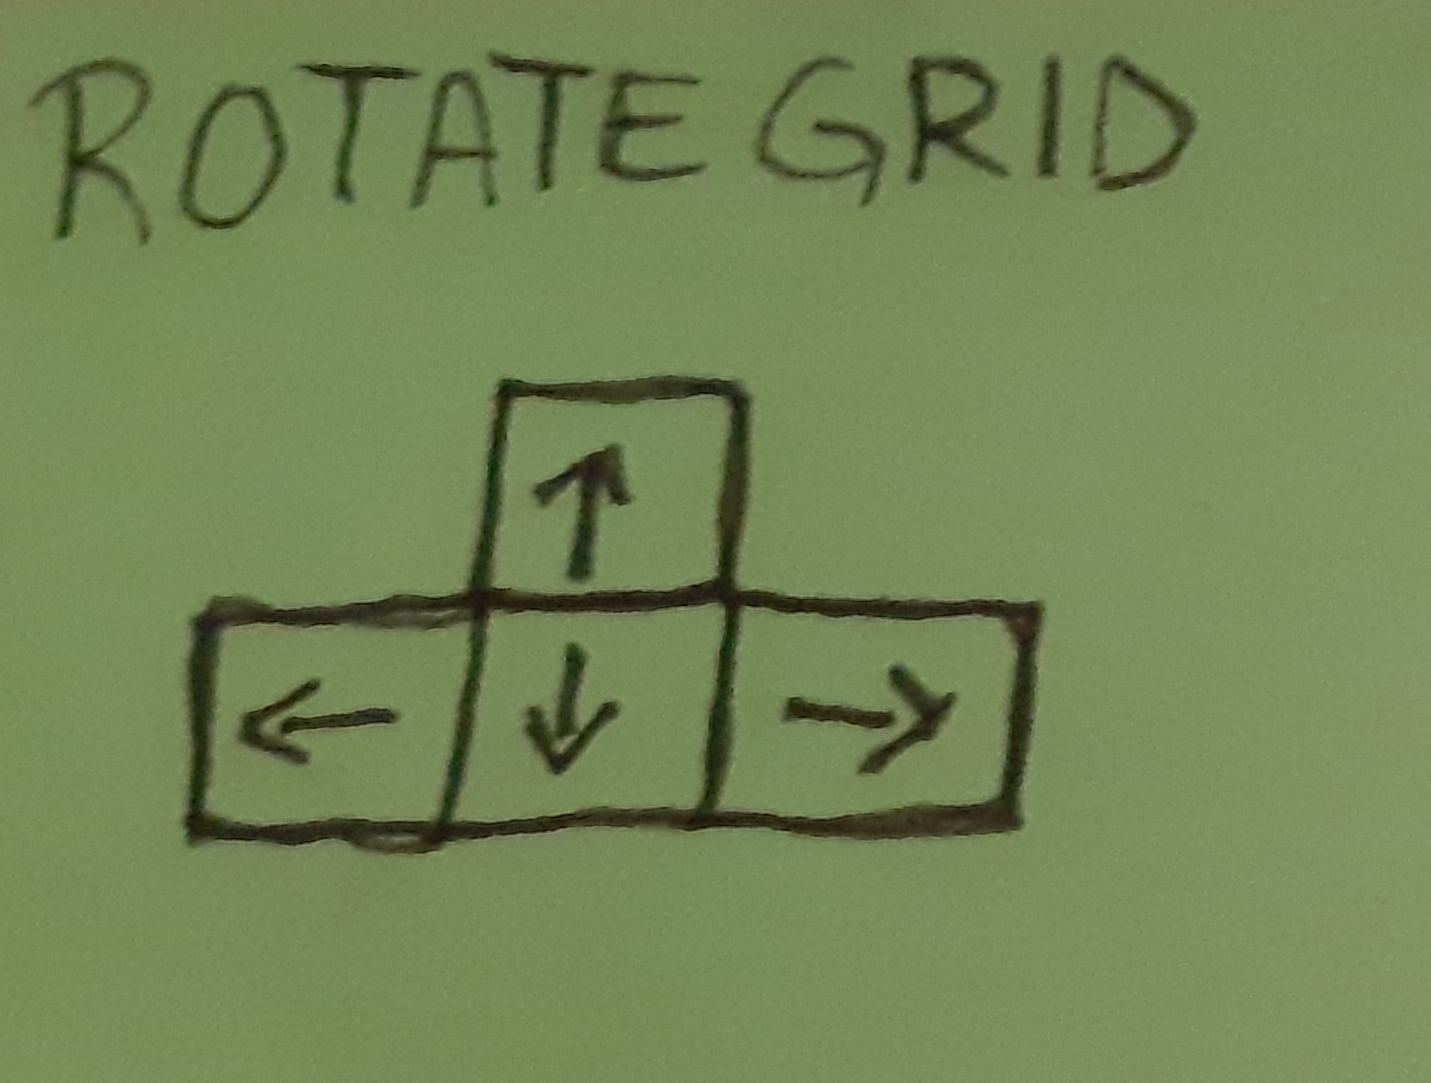 ROTATE GRID
↑
← ↓ →